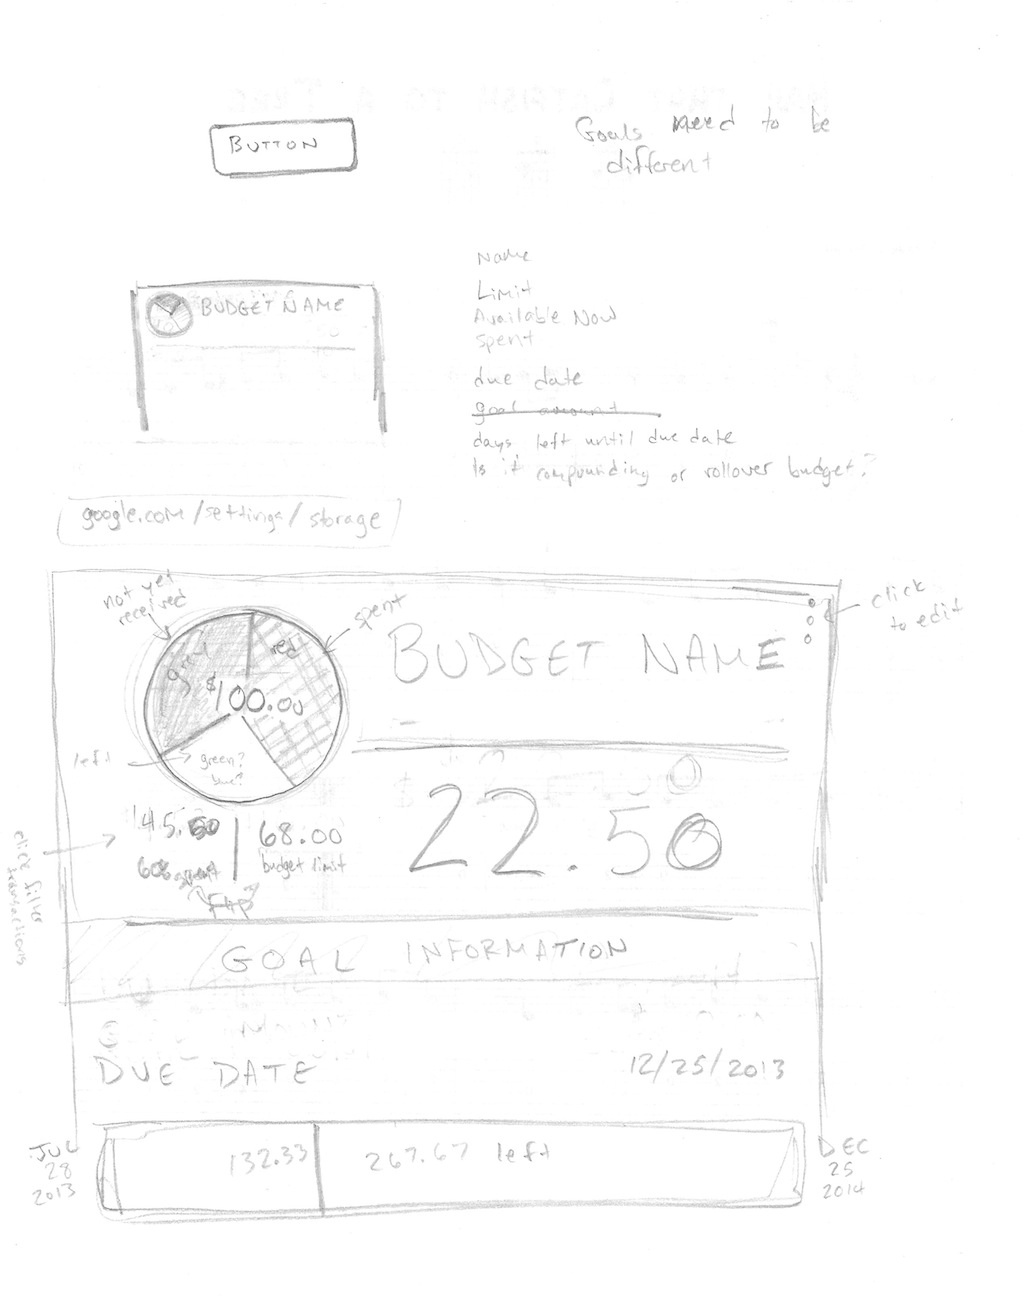 BUTTON
Goals need to be
different
BUDGET NAME
Name
Limit
Available Now
spent
due date
goal amount
days left until due date
Is it compounding or rollover budget?
google.com/settings/storage
not yet
received
spent
click
to edit
gray
red
$100.00
BUDGET NAME
left
green?
blue?
22.50
145.50
68.00
spent
budget limit
Flip
click filter
transactions
GOAL INFORMATION
DUE DATE
12/25/2013
JUL
28
2013
132.33
267.67 left
DEC
25
2014